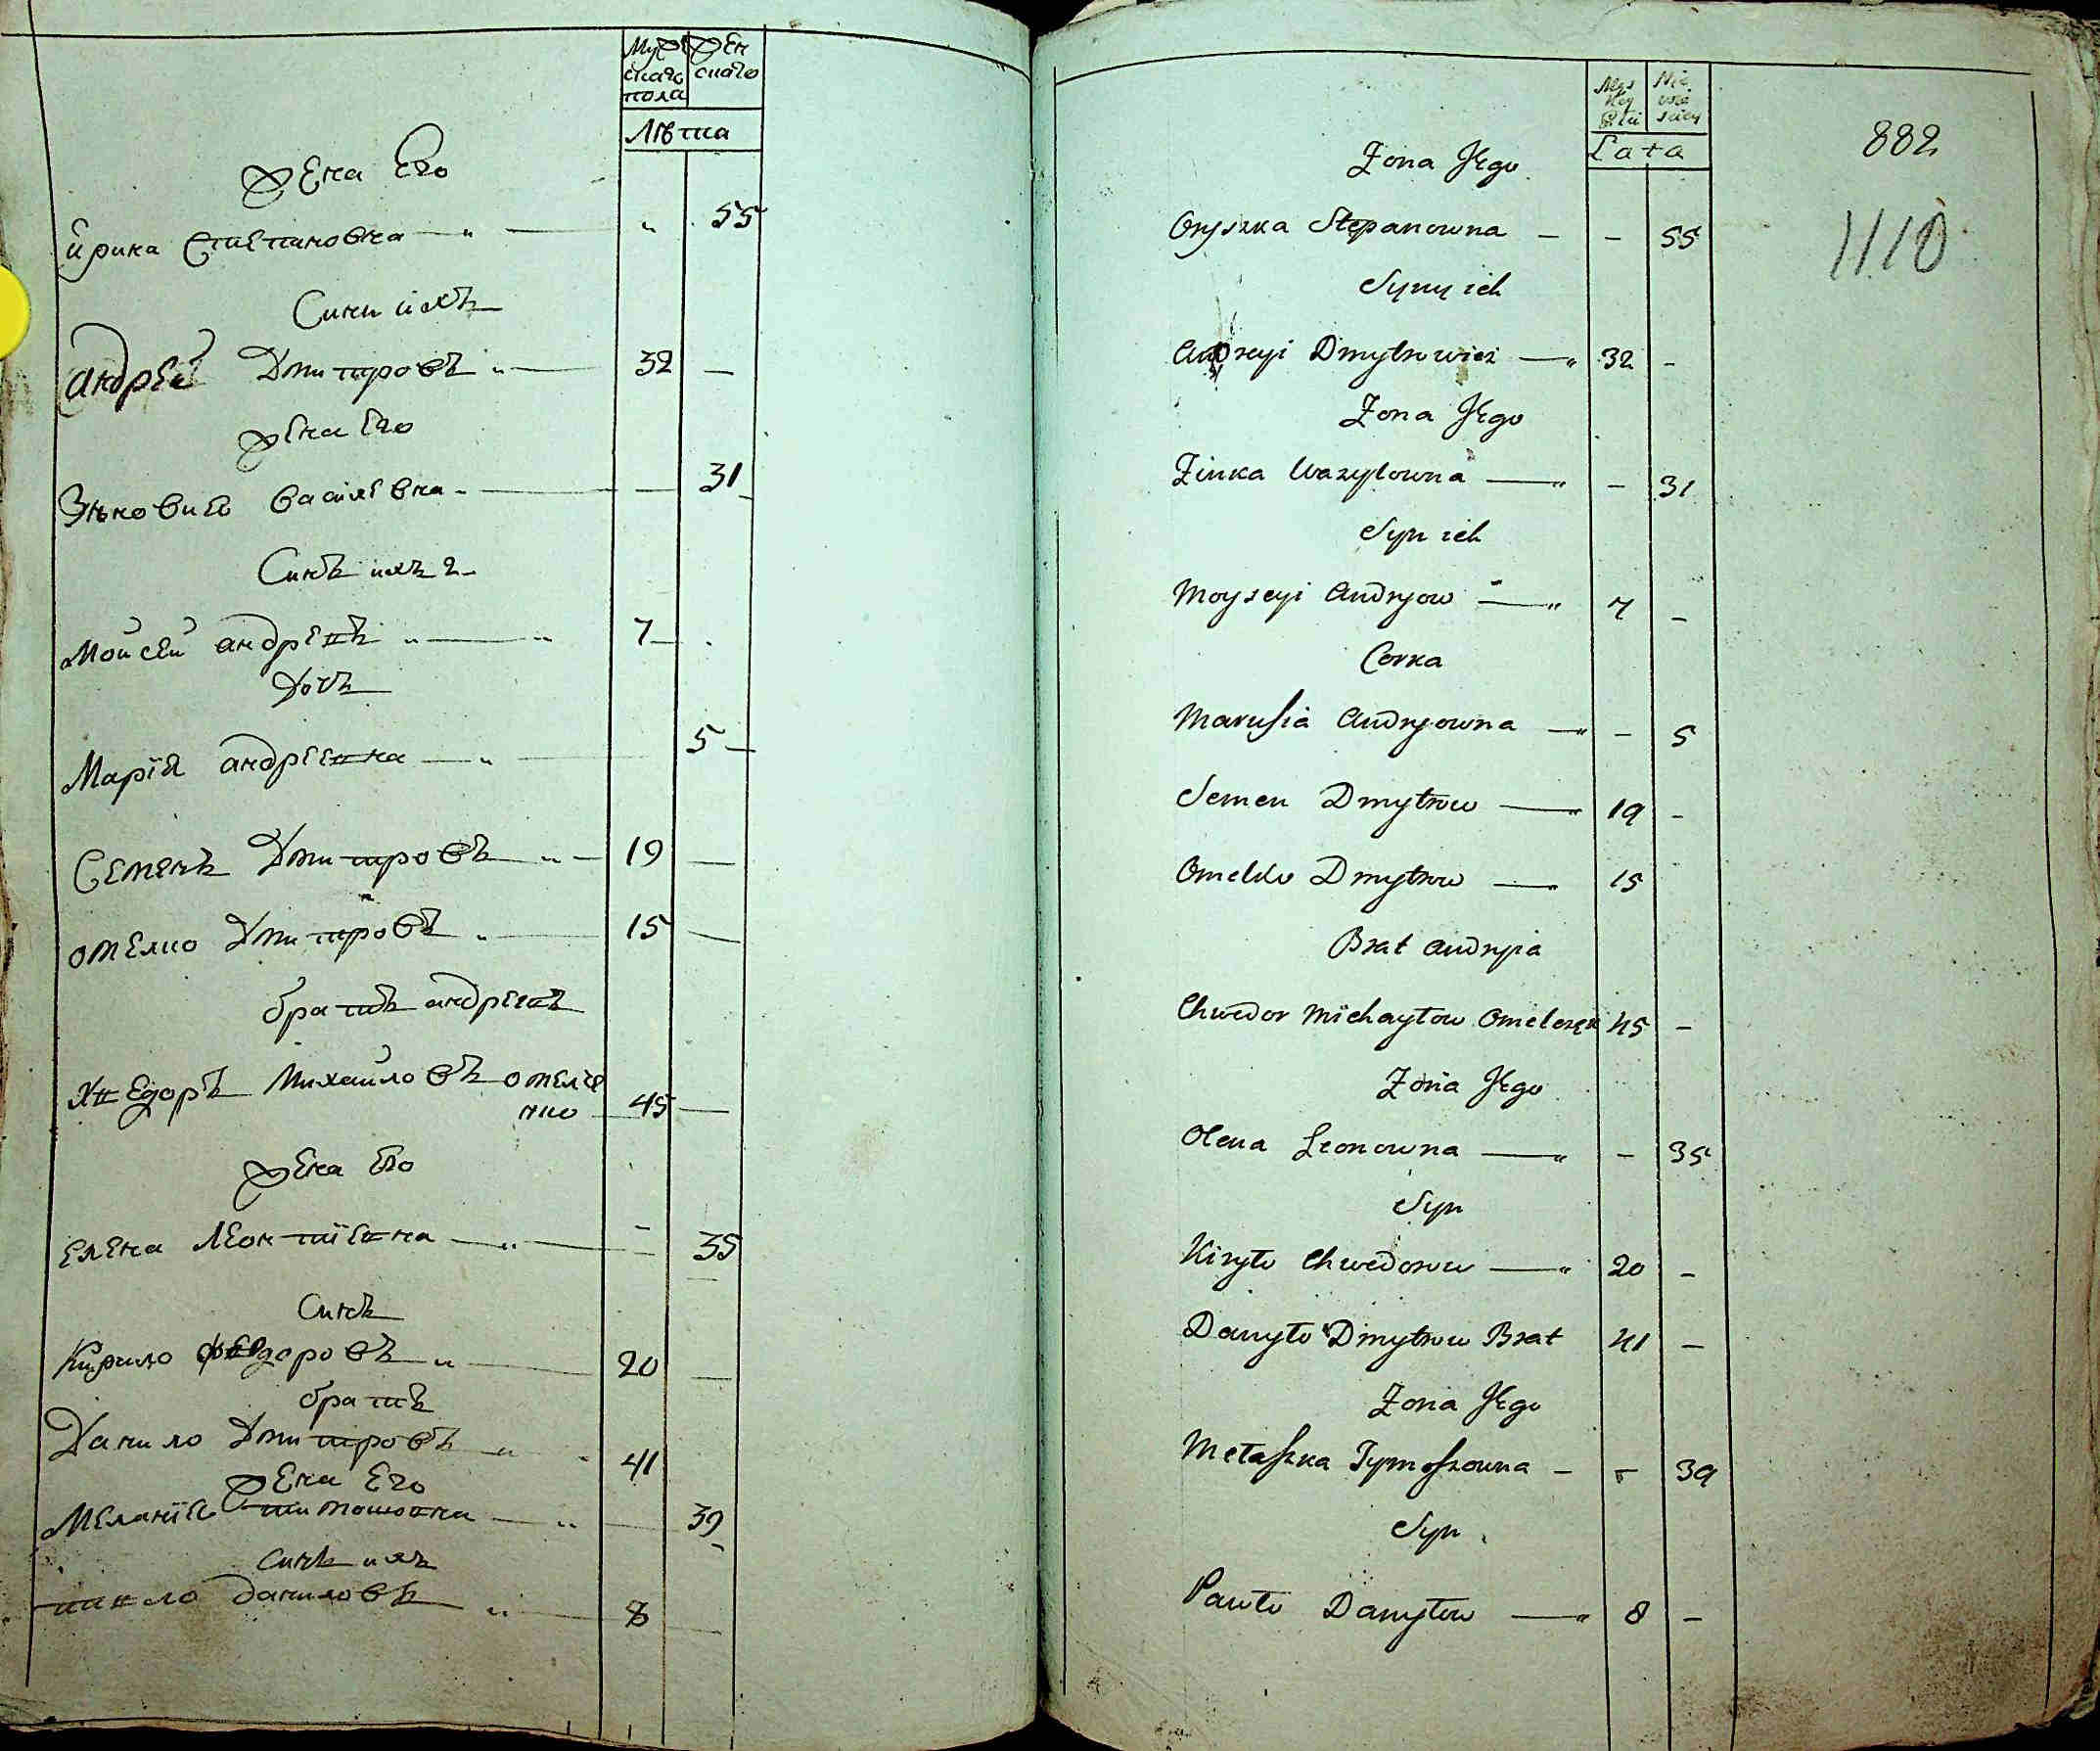 Мужескаго пола
Женскаго
Лѣта
жена Его
Ирина Степановна 55
Сини ихъ
Андрей Дмитровъ 32 —
жена Его
Зѣновия Василевна — 31
Синъ ихъ
Мойсей андреевъ 7
Дочь
Марія андреевна 5 —
Семенъ Дмитровъ 19 —
омелко Дмитровъ 15 —
братъ андреевъ
Хведоръ Михайловъ омелченко 45 —
жена Его
Елена Леонтіевна — 35
Синъ
Кирило Федоровъ 20 —
братъ
Данило Дмитровъ 41
жена Его
Меланія тимошовна 39
синъ ихъ
павло даниловъ 8
Męs key Płci
Nie wie sciey
Lata
882
1110
Żona Jego
Oryszka Stepanowna — — 55
Syny ich
Andreyi Dmytrowicz — 32 —
Żona Jego
Zinka Wazylowna — — 31
Syn ich
Moyseyi Andryow — 7 —
Corka
Marusia Andryowna — — 5
Semen Dmytrow — 19 —
Omelko Dmytrow — 15
Brat Andryia
Chwedor Michayłow Omelczęk 45 —
Żona Jego
Olena Leonowna — — 35
Syn
Kiryło Chwedorow — 20 —
Danyło Dmytrow Brat 41 —
Żona Jego
Metaszka Tymoszowna — — 39
Syn
Pawło Danyłow — 8 —